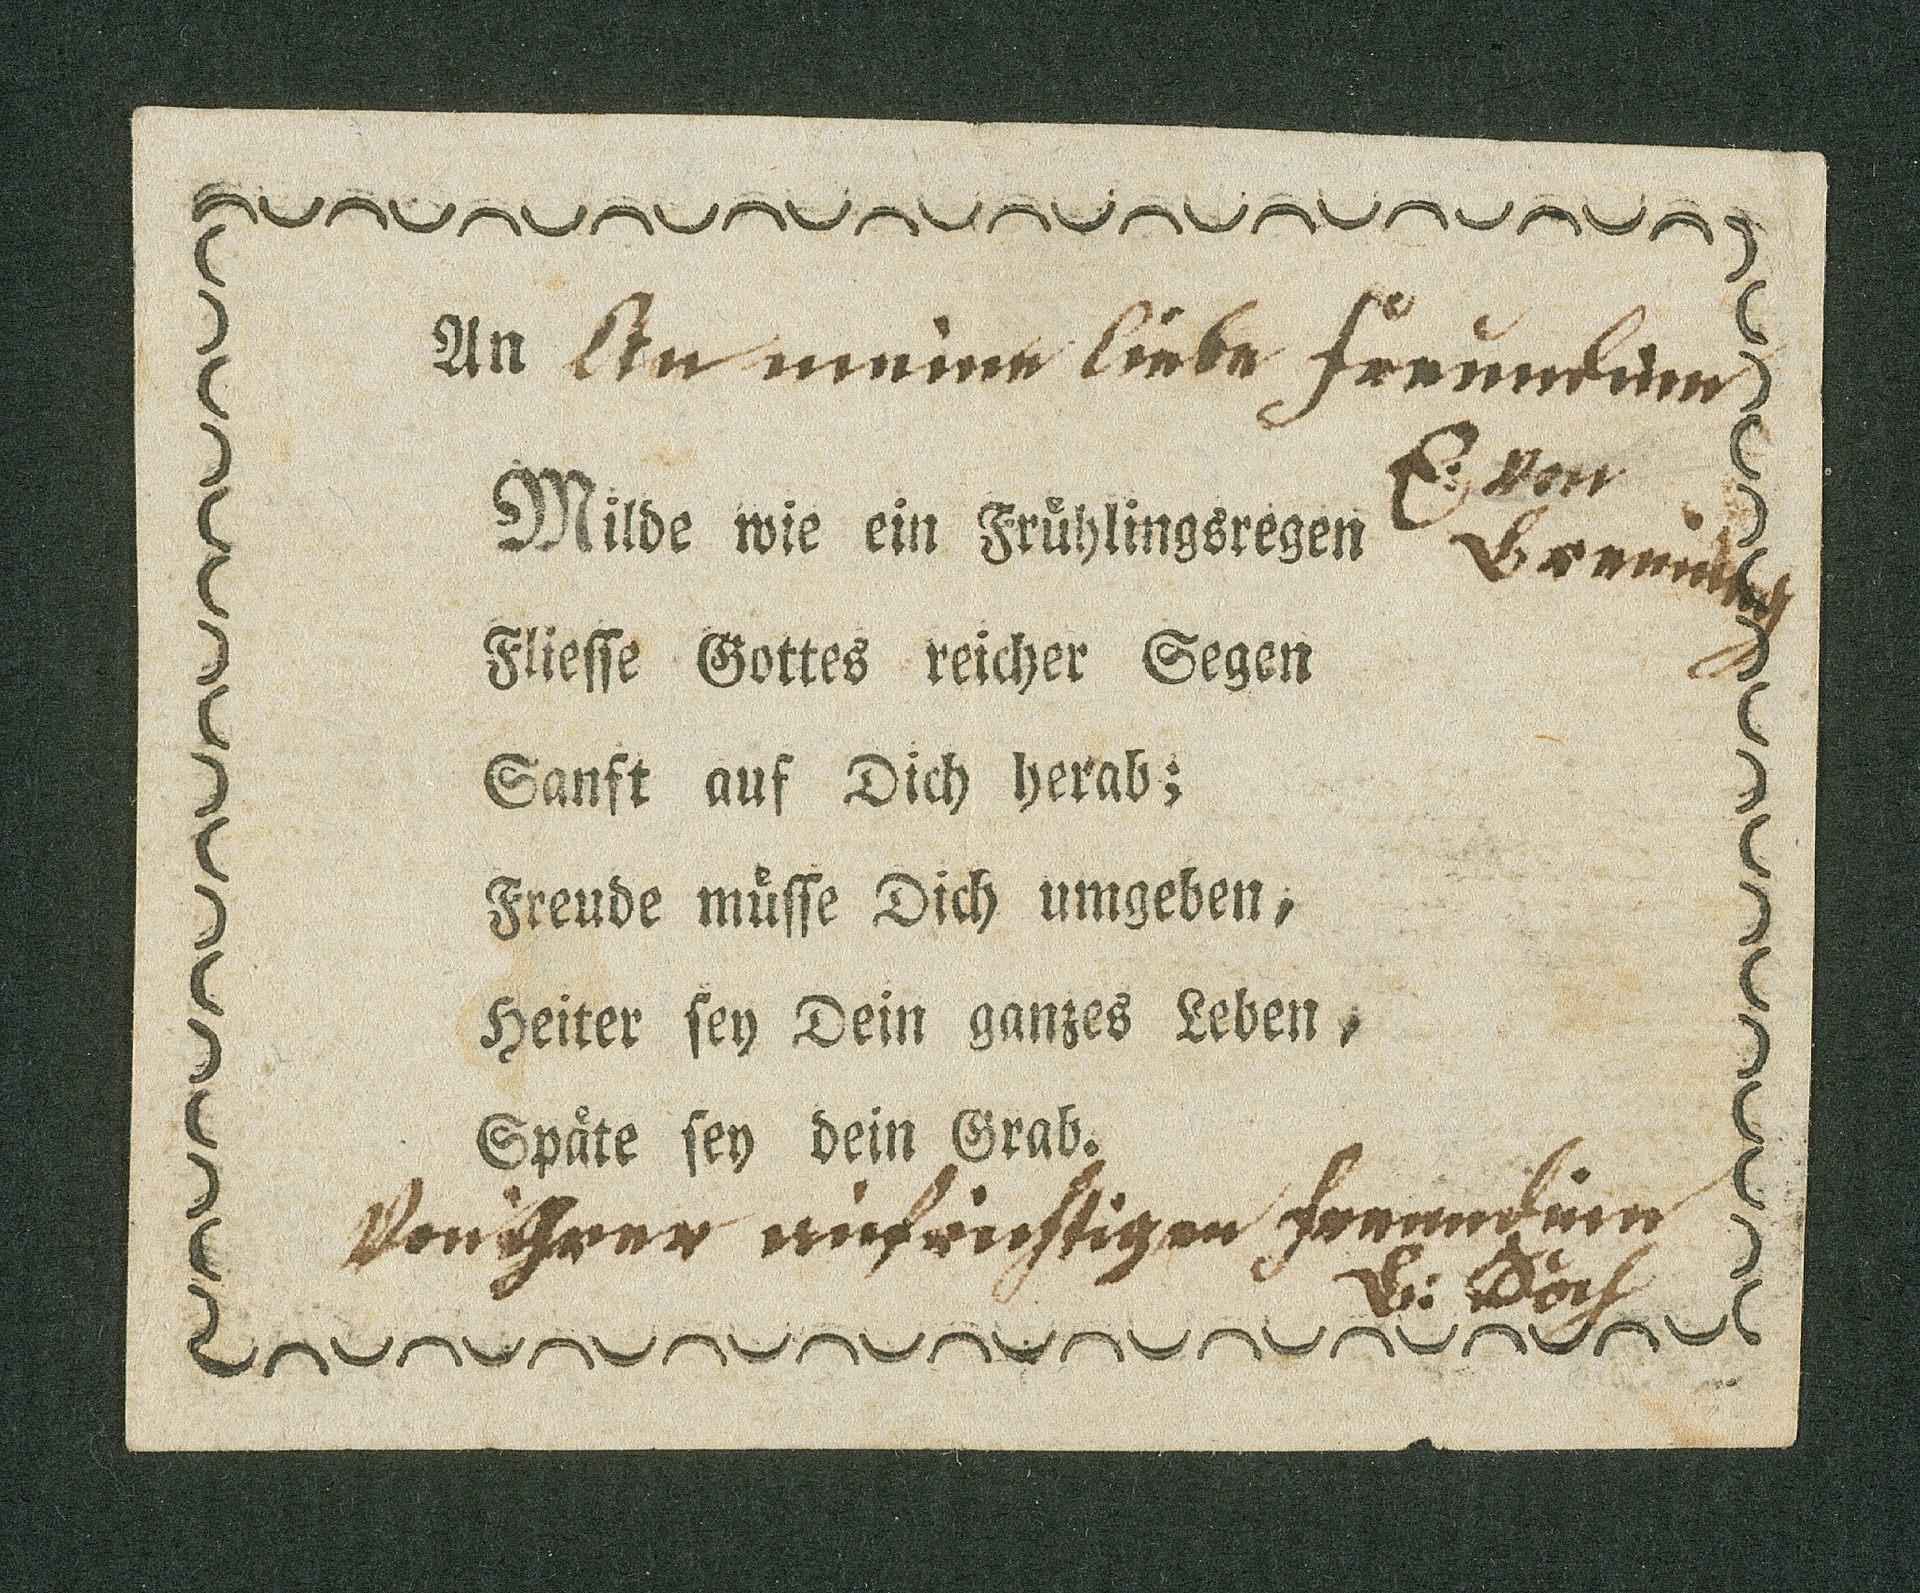 An An meine liebe Freundinn
E: von
Breuning
Milde wie ein Frühlingsregen
Fliesse Gottes reicher Segen
Sanft auf Dich herab;
Freude müsse Dich umgeben,
Heiter sey Dein ganzes Leben,
Späte sey dein Grab.
Von ihrer aufrichtigen Freundinn
B: Koch